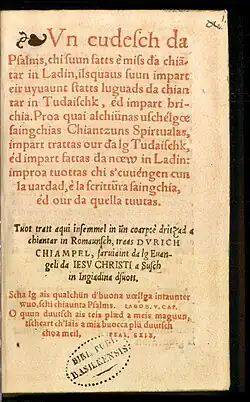 Vn cudesch da
Psalms, chi suun fatts è miss da chiã-
tar in Ladin, ilsquaus suun impart
eir uyuaunt statts luguads da chian
tar in Tudaischk, èd impart bri-
chia. Proa quai alchiünas uschelgœ
saingchias Chiantzuns Spirtualas,
impart trattas our da lg Tudaischk,
èd impart fattas da nœw in Ladin:
improa tuottas chi s'cuuengen cun
la uardad, è la scrittüra saingchia,
èd our da quella tuutas.
Tuot tratt aqui insemmel in ün coarpœ dritzad a
chiantar in Romaunsch, træs DVRICH
CHIAMPEL, saruiaint da lg Euan-
geli da IESV CHRISTI a Susch
in ingiadina dsuott.
Scha lg ais qualchün d'buona uœllga intaunter
wuo, schi chiaunta Psalms. IACOB. V. CAP.
O quun duutsch ais teis plæd a meis maguun,
ilcheart ch'lais a mia buocca plü duutsch
choa meil. PSAL. CXIX.
BIBL. PUBL.
BASILEENSIS.